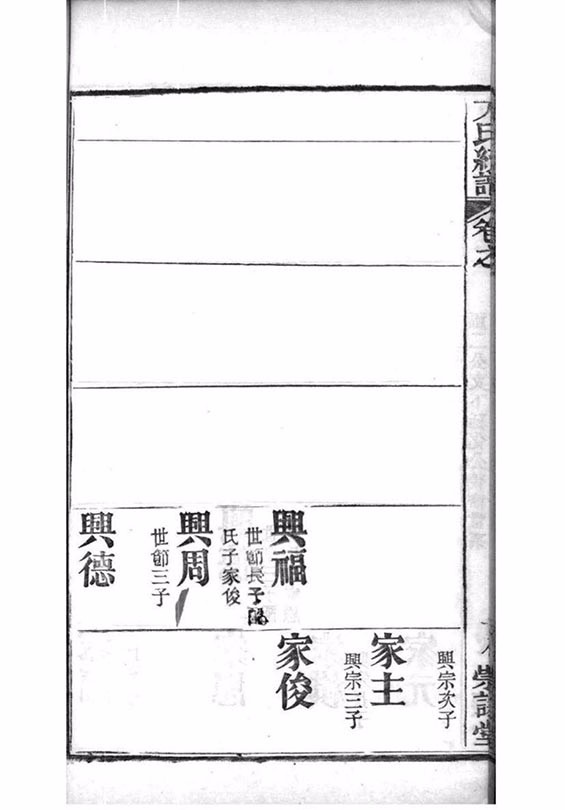 氏統譜
卷之
興福
世節長子配
氏子家俊
興周
世節三子
興德
興宗次子
家主
興宗三子
家俊